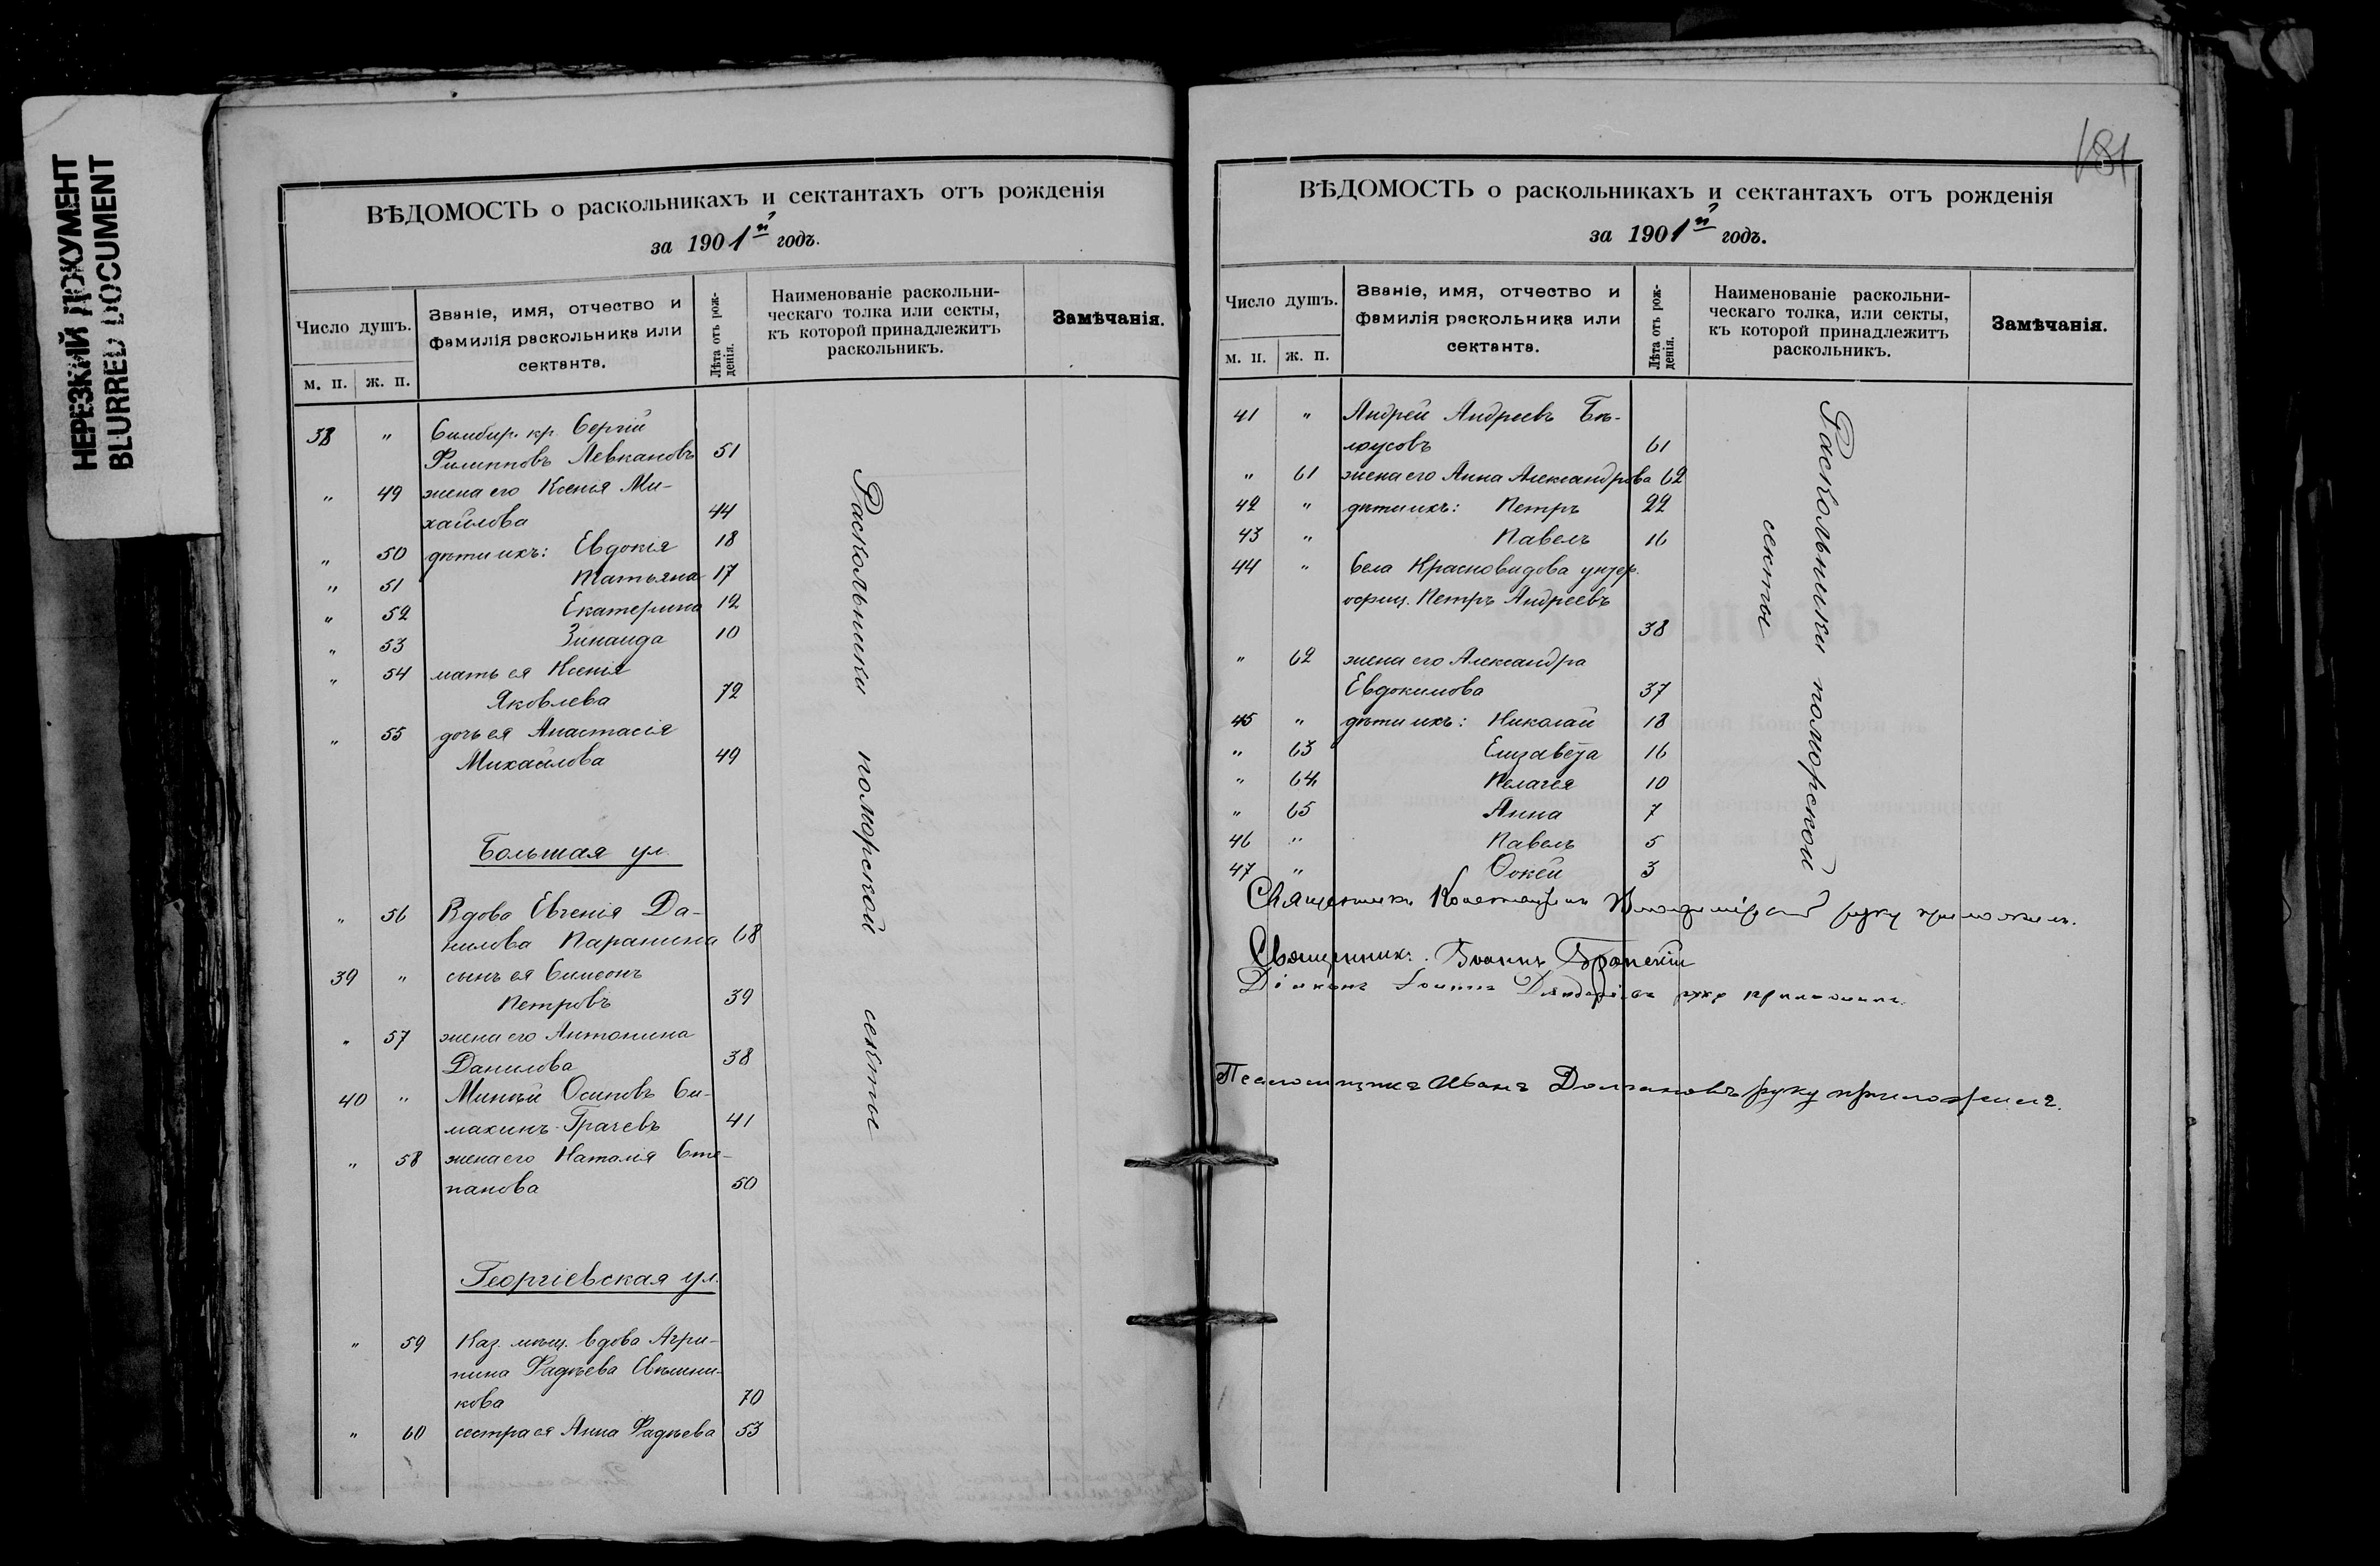 НЕРЕЗКИЙ ДОКУМЕНТ
BLURRED DOCUMENT
ВѢДОМОСТЬ о раскольникахъ и сектантахъ отъ рожденія
за 1901й годъ.
Число душъ.
м. п. ж. п.
Званіе, имя, отчество и
фамилія раскольника или
сектанта.
Лѣта отъ рож-
денія.
Наименованіе раскольни-
ческаго толка или секты,
къ которой принадлежитъ
раскольникъ.
Замѣчанія.
38 " Симбир. кр. Сергій
Филипповъ Левкановъ 51
" 49 жена его Ксенія Ми-
хайлова 44
" 50 дѣти ихъ: Евдокія 18
" 51 Татьяна 17
" 52 Екатерина 12
" 53 Зинаида 10
" 54 мать ея Ксенія
Яковлева 72
" 55 дочь ея Анастасія
Михайлова 49
Большая ул.
" 56 Вдова Евгенія Да-
нилова Паранина 68
39 " сынъ ея Симеонъ
Петровъ 39
" 57 жена его Антонина
Данилова 38
40 " Миней Осиповъ Си-
махинъ-Грачевъ 41
" 58 жена его Наталія Сте-
панова 50
Георгіевская ул.
" 59 Каз. мѣщ. вдова Агри-
пина Фадѣева
кова 70
" 60 сестра ея Анна Фадѣева 53
Раскольники поморской секты
181
ВѢДОМОСТЬ о раскольникахъ и сектантахъ отъ рожденія
за 1901й годъ.
Число душъ.
м. п. ж. п.
Званіе, имя, отчество и
фамилія раскольника или
сектанта.
Лѣта отъ рож-
денія.
Наименованіе раскольни-
ческаго толка, или секты,
къ которой принадлежитъ
раскольникъ.
Замѣчанія.
41 " Андрей Андреевъ Бѣ-
лоусовъ 61
" 61 жена его Анна Александрова 62
42 " дѣти ихъ: Петръ 22
43 " Павелъ 16
44 " Села Красновидова унтер.
офиц. Петръ Андреевъ
38
" 62 жена его Александра
Евдокимова 37
45 " дѣти ихъ: Николай 18
" 63 Елизавета 16
" 64 Пелагея 10
" 65 Анна 7
46 " Павелъ 5
47 " 3
Раскольники поморской
секты
Священникъ руку приложилъ.
Священникъ Іоаннъ
Діаконъ Іоаннъ руку приложилъ.
Псаломщикъ Иванъ Долгановъ руку приложилъ.